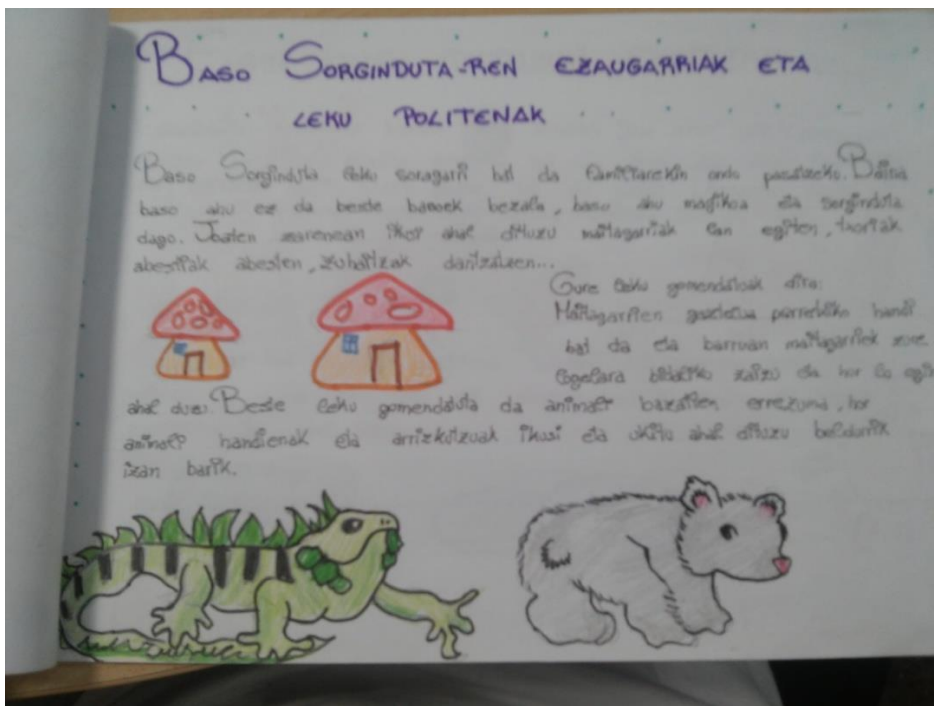 BASO SORGINDUTA-REN EZAUGARRIAK ETA
LEKU POLITENAK
Baso Sorginduta leku soragarri bat da familiarekin ondo pasatzeko. Baina
baso hau ez da beste basoek bezala, baso hau magikoa eta sorginduta
dago. Joaten zarenean ikos ahal dituzu maitagarriak lan egiten, txoriak
abestiak abesten, zuhaitzak dantzatzen...
Gure leku gomendatuak dira:
Maitagarrien gaztelua parrekiko handi
bat da eta barruan maitagarriek zure
logelara bidaliko zaizu eta hor lo egin
ahal duzu. Beste leku gomendatuta da animali bazatien errezuma, hor
animali handienak eta arrizkutzuak ikusi eta ukitu ahal dituzu beldurrik
izan barik.